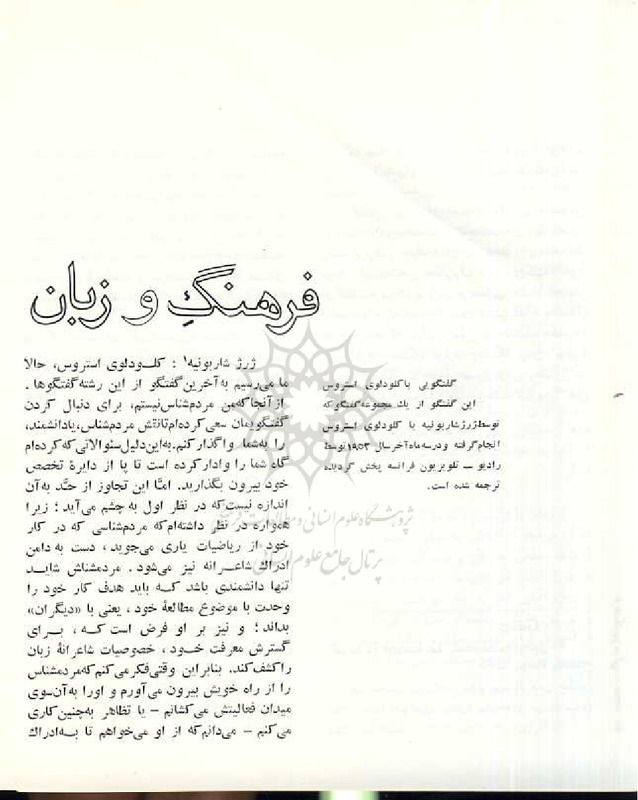 فرهنگِ و زبان
گفتگویی با کلودلوی استروس
این گفتگو از یك مجموعه گفتگو که
توسط ژرژ شاربونیه با کلودلوی استروس
انجام گرفته و در سه ماه آخر سال ۱۹۵۳ توسط
رادیو ــ تلویزیون فرانسه پخش گردیده
ترجمه شده است.
ژرژ شاربونیه۱ : کلـودلوی استروس، حالا
ما می‌رسیم به آخرین گفتگو از این رشته گفتگوها .
از آنجا که من مردم‌شناس نیستم، برای دنبال کردن
گفتگویمان سعی کرده‌ام تا نقش مردم‌شناس، یا دانشمند،
را به شما واگذار کنم. به این دلیل سئوالاتی که کرده‌ام
گاه شما را وادار کرده است تا پا از دایرهٔ تخصص
خود بیرون بگذارید. امّا این تجاوز از حدّ به آن
اندازه نیست که در نظر اول به چشم می‌آید ؛ زیرا
همواره در نظر داشته‌ام که مردم‌شناسی که در کار
خود از ریاضیات یاری می‌جوید ، دست به دامن
ادراك شاعـرانه نیز می‌شود . مردمشناش شایـد
تنها دانشمندی باشد کـه باید هدف کار خود را
وحدت با موضوع مطالعهٔ خود ، یعنی با «دیگران»
بداند ؛ و نیز بر او فرض است کـه ، بـرای
گسترش معرفت خـود ، خصوصیات شاعرانهٔ زبان
را کشف کند. بنابراین وقتی فکر می‌کنم که مردمشناس
را از راه خویش بیرون می‌آورم و اورا به آن‌سوی
میدان فعالیتش می‌کشانم – یا تظاهر به‌چنین کاری
می‌کنم – می‌دانم که از او می‌خواهم تا بـه ادراك
پژوهشگاه علوم انسانی و مطالعات فرهنگی
پرتال جامع علوم انسانی